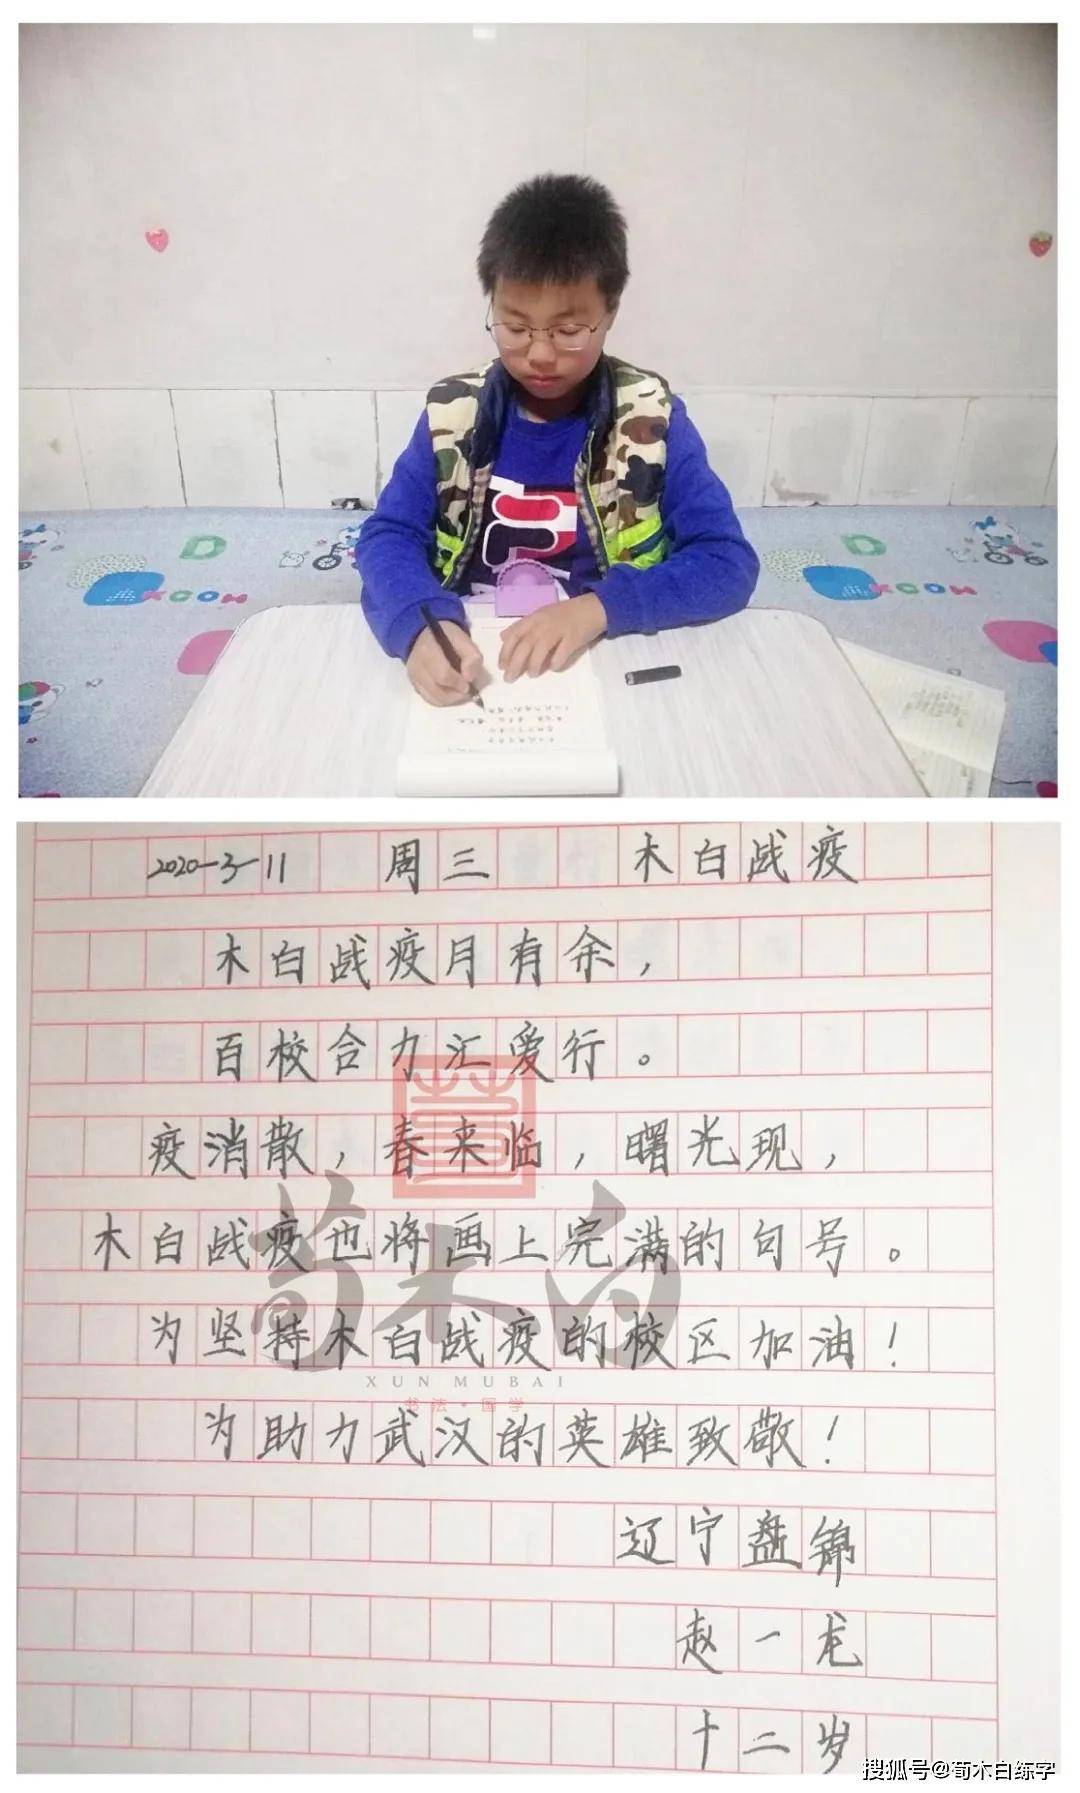 D
D
KOOH
KOOH
2020-3-11 周三 木白战疫
木白战疫月有余，
百校合力汇爱行。
疫消散，春来临，曙光现，
木白战疫也将画上完满的句号。
为坚持木白战疫的校区加油！
为助力武汉的英雄致敬！
荀木白
XUN MUBAI
书法·国学
辽宁盘锦
赵一龙
十二岁
搜狐号@荀木白练字